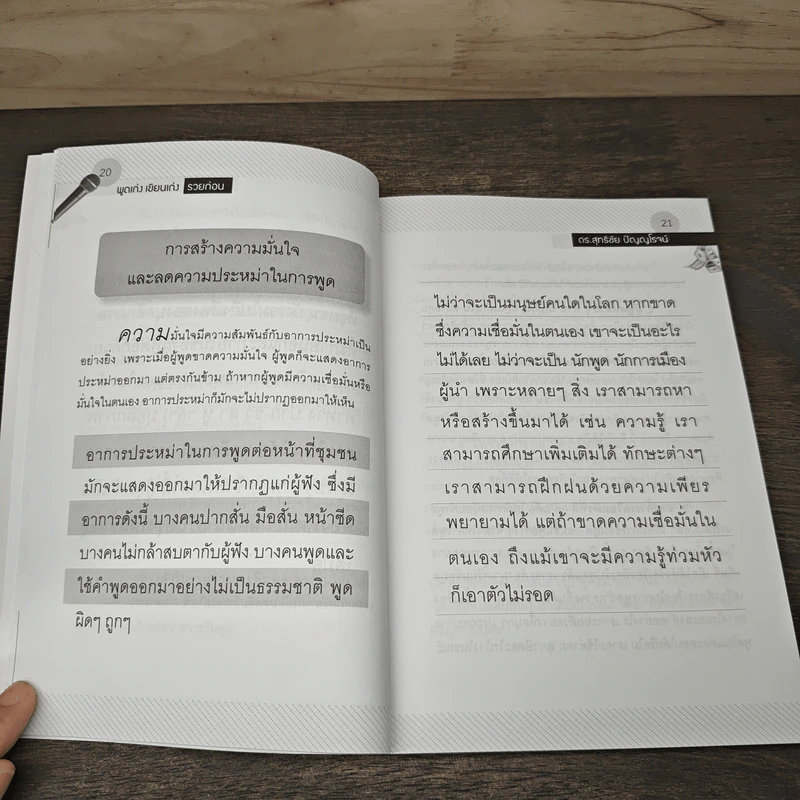 20
พูดเก่ง เขียนเก่ง รวยก่อน
การสร้างความมั่นใจ
และลดความประหม่าในการพูด
ความมั่นใจมีความสัมพันธ์กับอาการประหม่าเป็น
อย่างยิ่ง เพราะเมื่อผู้พูดขาดความมั่นใจ ผู้พูดก็จะแสดงอาการ
ประหม่าออกมา แต่ตรงกันข้าม ถ้าหากผู้พูดมีความเชื่อมั่นหรือ
มั่นใจในตนเอง อาการประหม่าก็มักจะไม่ปรากฏออกมาให้เห็น
อาการประหม่าในการพูดต่อหน้าที่ชุมชน
มักจะแสดงออกมาให้ปรากฏแก่ผู้ฟัง ซึ่งมี
อาการดังนี้ บางคนปากสั่น มือสั่น หน้าซีด
บางคนไม่กล้าสบตากับผู้ฟัง บางคนพูดและ
ใช้คำพูดออกมาอย่างไม่เป็นธรรมชาติ พูด
ผิดๆ ถูกๆ
21
ดร.สุทธิชัย ปัญญโรจน์
ไม่ว่าจะเป็นมนุษย์คนใดในโลก หากขาด
ซึ่งความเชื่อมั่นในตนเอง เขาจะเป็นอะไร
ไม่ได้เลย ไม่ว่าจะเป็น นักพูด นักการเมือง
ผู้นำ เพราะหลายๆ สิ่ง เราสามารถหา
หรือสร้างขึ้นมาได้ เช่น ความรู้ เรา
สามารถศึกษาเพิ่มเติมได้ ทักษะต่างๆ
เราสามารถฝึกฝนด้วยความเพียร
พยายามได้ แต่ถ้าขาดความเชื่อมั่นใน
ตนเอง ถึงแม้เขาจะมีความรู้ท่วมหัว
ก็เอาตัวไม่รอด